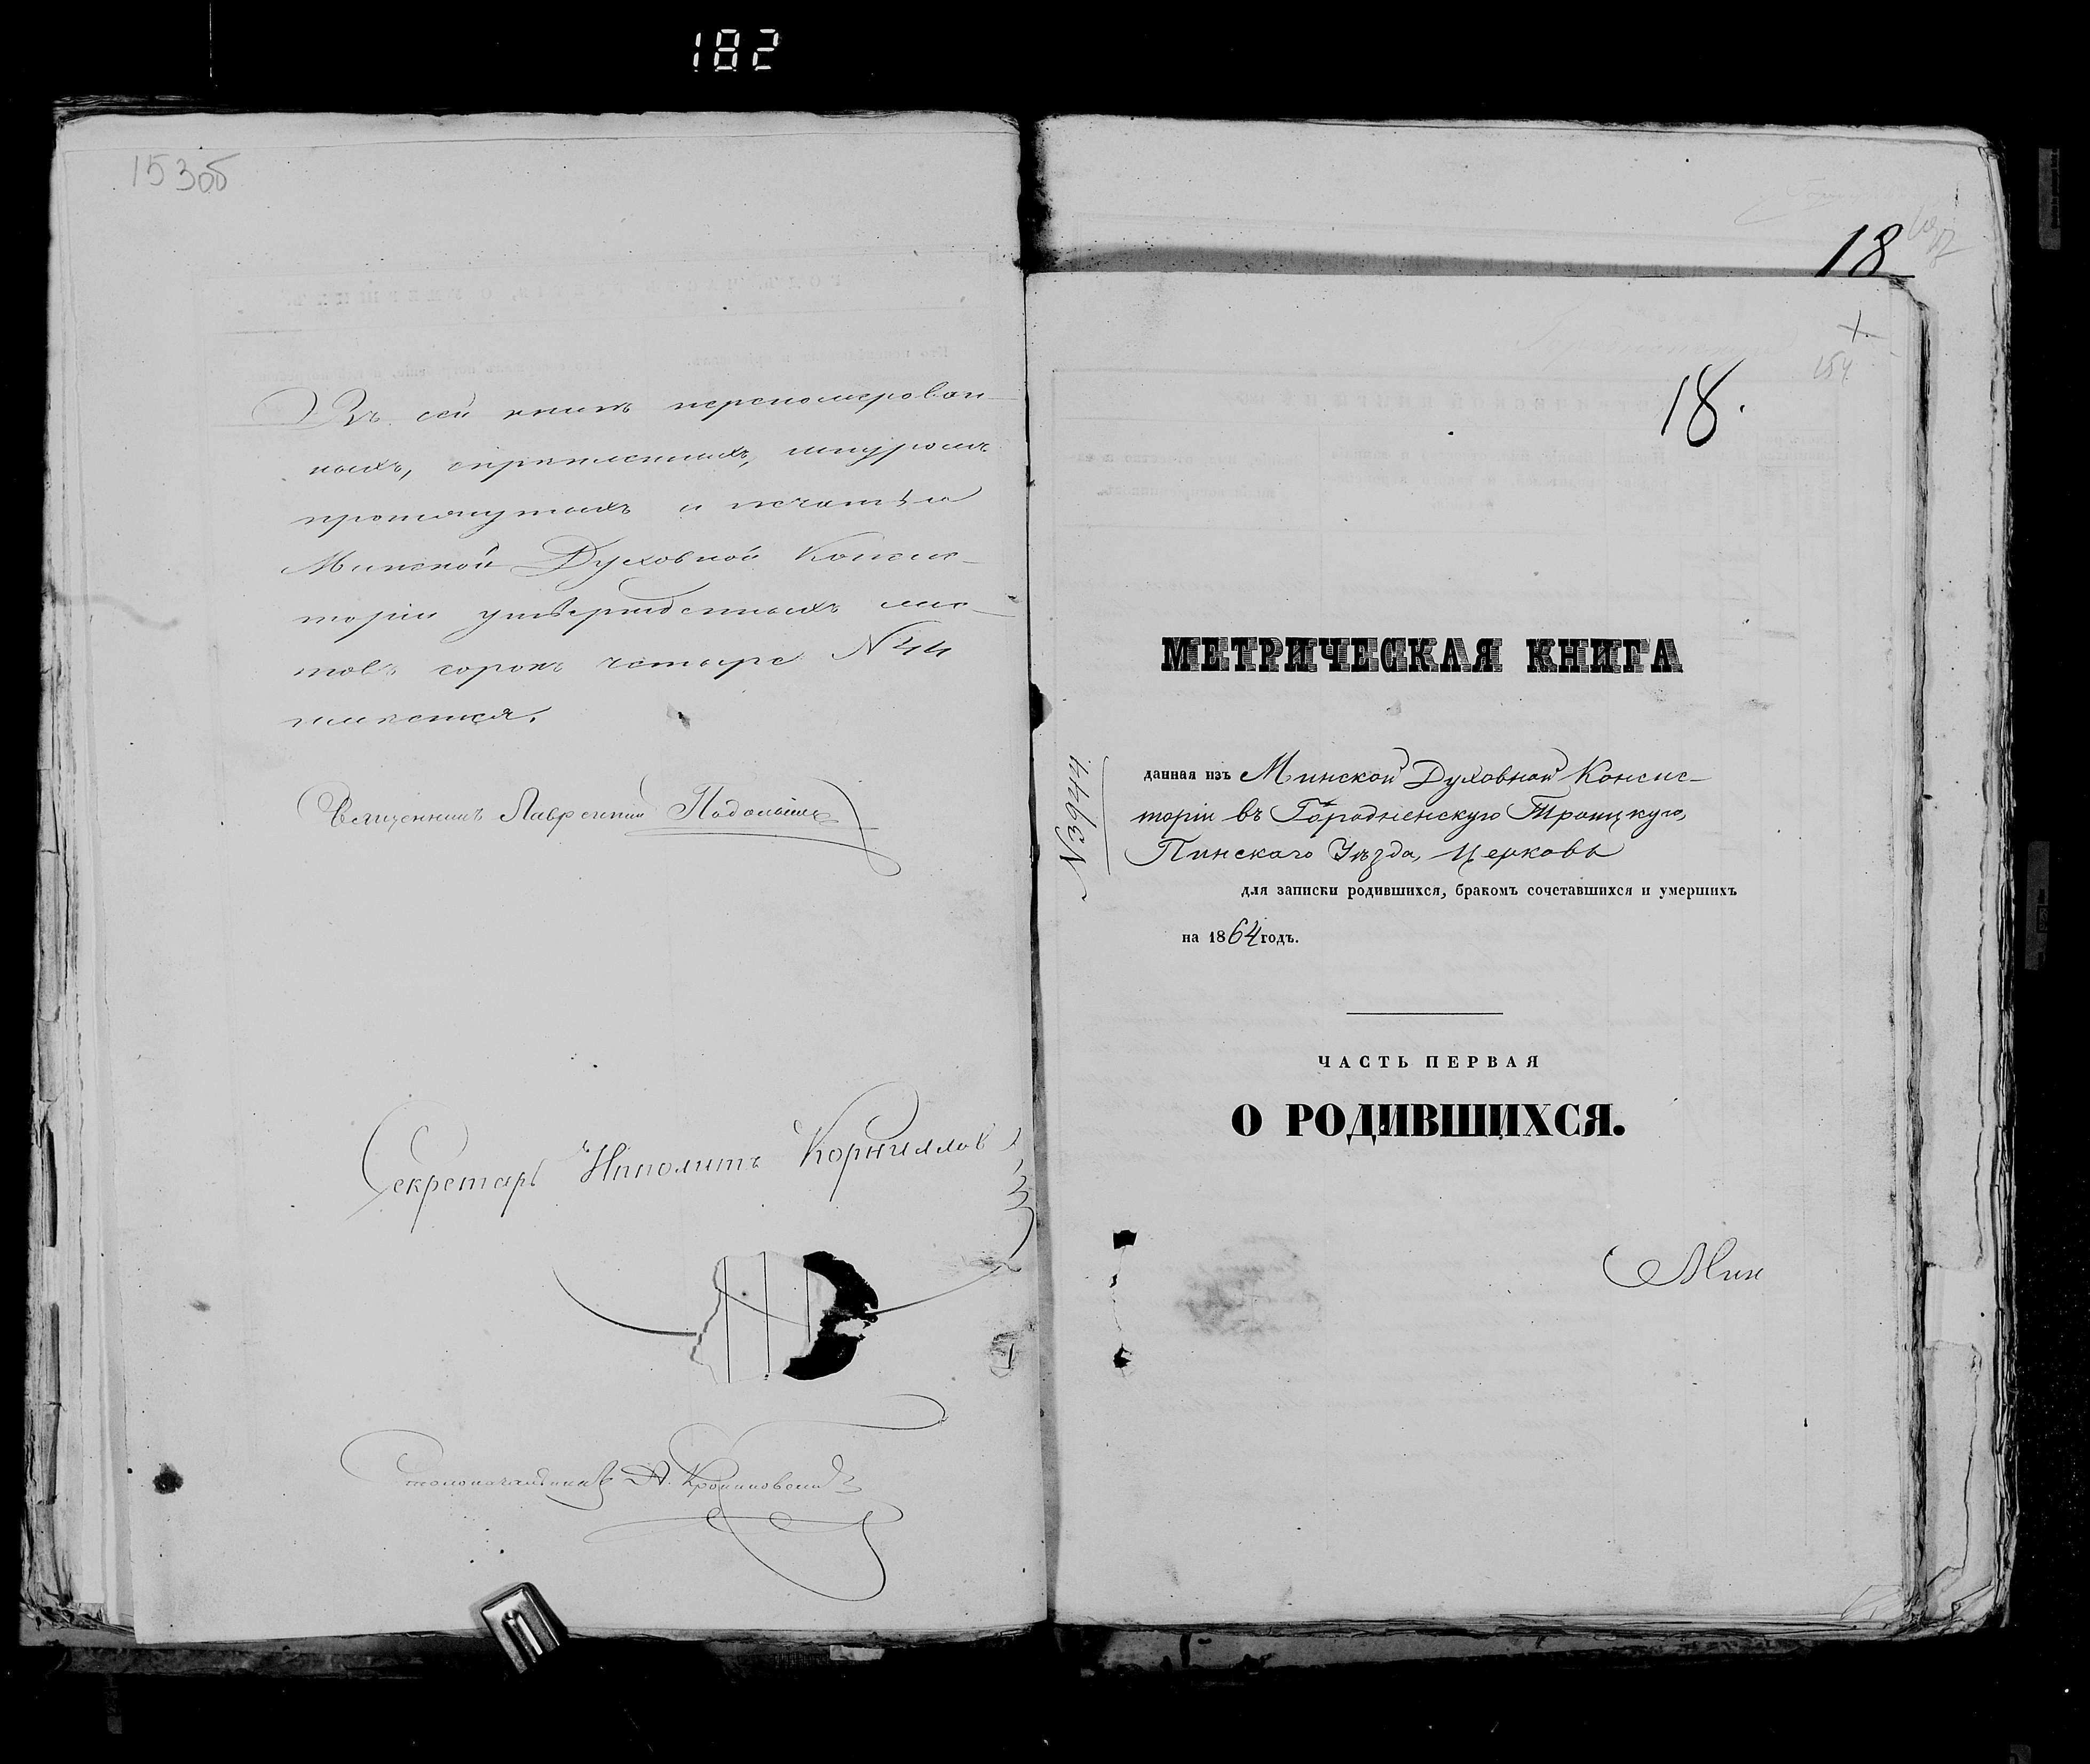 182
153об
Въ сей книгѣ перенумерован-
ныхъ, скрѣпленныхъ, шнуромъ
протянутыхъ и печатью
Минской Духовной Консис-
торіи утвержденныхъ лис-
товъ сорокъ четыре N 44
имеется.
Священникъ Лаврентій
Секретарь Ипполитъ Корниллов
Столоначальникъ А.
18
18.
154
МЕТРИЧЕСКАЯ КНИГА
N 3944.
данная изъ Минской Духовной Консис-
торіи въ Городненскую Троицкую,
Пинскаго Уѣзда, Церковь
для записки родившихся, бракомъ сочетавшихся и умершихъ
на 1864 годъ.
ЧАСТЬ ПЕРВАЯ
О РОДИВШИХСЯ.
Мин